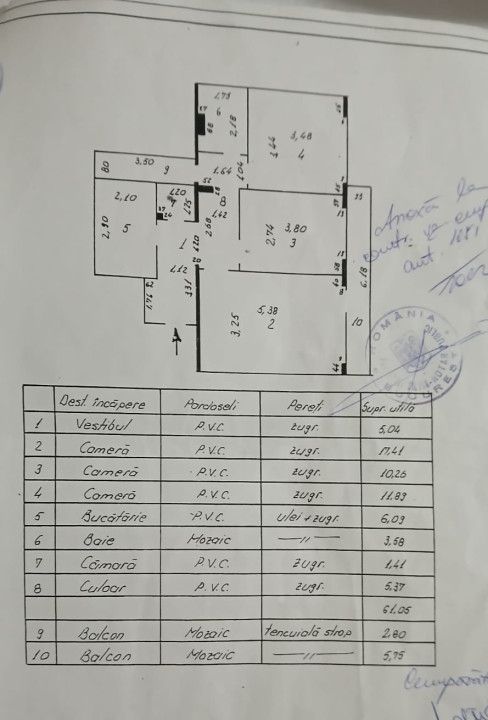 1,73
17
6
68
2,18
3,48
3,44
4
3,50
80
9
1,64
1,04
52
28
8
1,20
7
1,75
1,42
2,10
17
24
2,90
5
2,68
1
1,20
20
3,80
2,74
3
11
11
11
6,18
1,12
1,76
1,31
5,38
3,25
2
10
44
Anexă la
contr.
aut. 1681
ROMÂNIA
Dest. încăpere Pardoseli Pereți Supr. utilă
1 Vestibul P.V.C. zugr. 5,04
2 Cameră P.V.C. zugr. 17,41
3 Cameră P.V.C. zugr. 10,25
4 Cameră P.V.C. zugr. 11,89
5 Bucătărie P.V.C. ulei+zugr. 6,09
6 Baie Mozaic —"— 3,58
7 Cămară P.V.C. zugr. 1,41
8 Culoar P.V.C. zugr. 5,37
61,05
9 Balcon Mozaic tencuială strop 2,80
10 Balcon Mozaic —"— 5,75